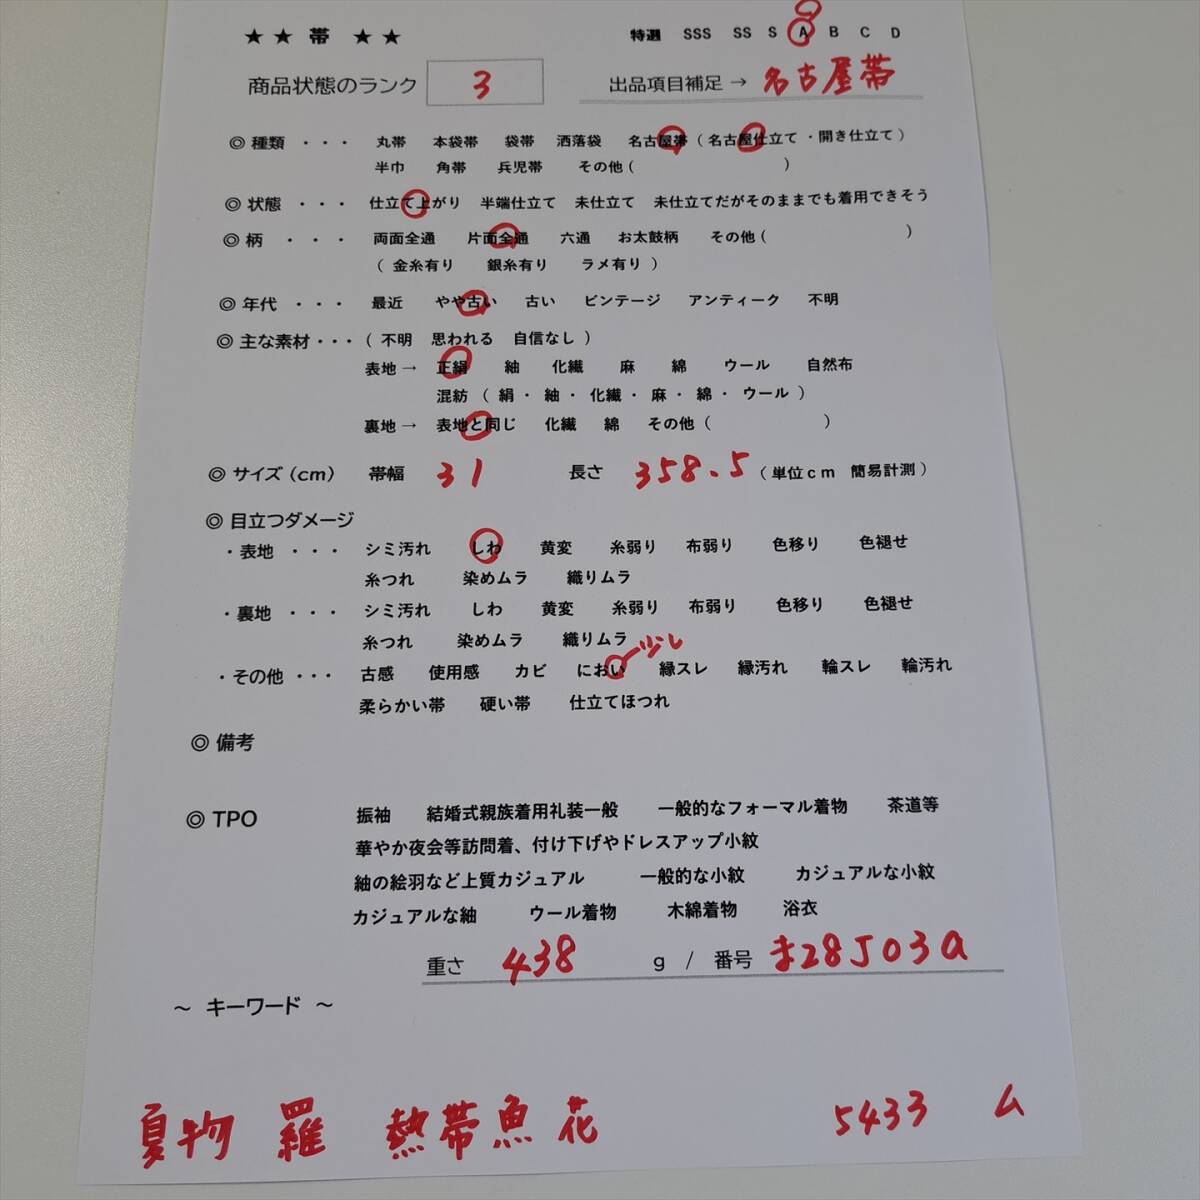 ★★ 帯 ★★ 特選 SSS SS S A B C D
商品状態のランク 3 出品項目補足→ 名古屋帯
◎ 種類 ・・・ 丸帯 本袋帯 袋帯 洒落袋 名古屋帯(名古屋仕立て・開き仕立て)
半巾 角帯 兵児帯 その他( )
◎ 状態 ・・・ 仕立て上がり 半端仕立て 未仕立て 未仕立てだがそのままでも着用できそう
◎ 柄 ・・・ 両面全通 片面全通 六通 お太鼓柄 その他( )
( 金糸有り 銀糸有り ラメ有り )
◎ 年代 ・・・ 最近 やや古い 古い ビンテージ アンティーク 不明
◎ 主な素材・・・( 不明 思われる 自信なし )
表地→ 正絹 紬 化繊 麻 綿 ウール 自然布
混紡 ( 絹・紬・化繊・麻・綿・ウール )
裏地→ 表地と同じ 化繊 綿 その他( )
◎ サイズ(cm) 帯幅 31 長さ 358.5 (単位cm 簡易計測)
◎ 目立つダメージ
・表地 ・・・ シミ汚れ しわ 黄変 糸弱り 布弱り 色移り 色褪せ
糸つれ 染めムラ 織りムラ
・裏地 ・・・ シミ汚れ しわ 黄変 糸弱り 布弱り 色移り 色褪せ
糸つれ 染めムラ 織りムラ
少し
・その他 ・・・ 古感 使用感 カビ におい 縁スレ 縁汚れ 輪スレ 輪汚れ
柔らかい帯 硬い帯 仕立てほつれ
◎ 備考
◎ TPO 振袖 結婚式親族着用礼装一般 一般的なフォーマル着物 茶道等
華やか夜会等訪問着、付け下げやドレスアップ小紋
紬の絵羽など上質カジュアル 一般的な小紋 カジュアルな小紋
カジュアルな紬 ウール着物 木綿着物 浴衣
重さ 438 g / 番号 ま28J03a
～ キーワード ～
夏物 羅 熱帯魚 花 5433 ム